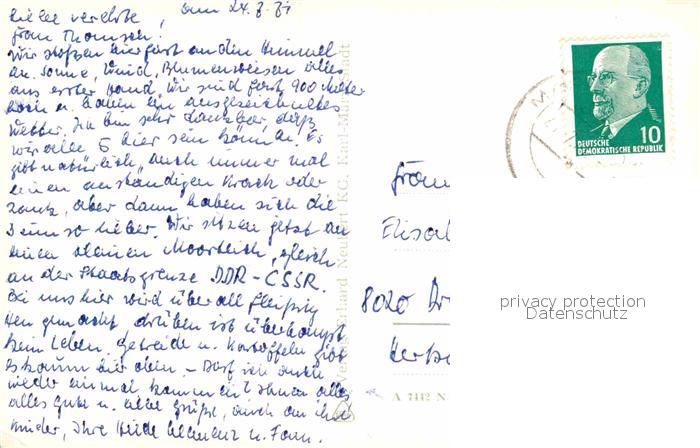 am 24.7.71
Liebe verehrte,
Frau Thomsen!
Wir stoßen hier fast an den Himmel
an. Sonne, Wind, Blumenwiesen alles
aus erster Hand, wir sind fast 900 Meter
hoch u. haben ein ausgezeichnetes
Wetter. Ich bin sehr dankbar daß
wir alle 5 hier sein können. Es
gibt natürlich auch immer mal
einen anständigen Krach oder
Zank, aber dann haben sich die
umso lieber. Wir sitzen jetzt an
einem kleinen Moorteich, gleich
an der Staatsgrenze DDR-CSSR.
Bei uns hier wird überall fleißig
Heu gemacht, drüben ist überhaupt
kein Leben. Getreide u. Kartoffeln gibt
es kaum hier oben. - Darf ich auch
wieder einmal kommen? Ihnen alles
alles Gute u. liebe Grüße, auch an Ihre
Kinder, Ihre Heide u. Fam.
Verlag Erhard Neubert KG, Karl-Marx-Stadt
A 7442 N
10
DEUTSCHE
DEMOKRATISCHE REPUBLIK
Frau
Elisa
8020 Dr
privacy protection
Datenschutz